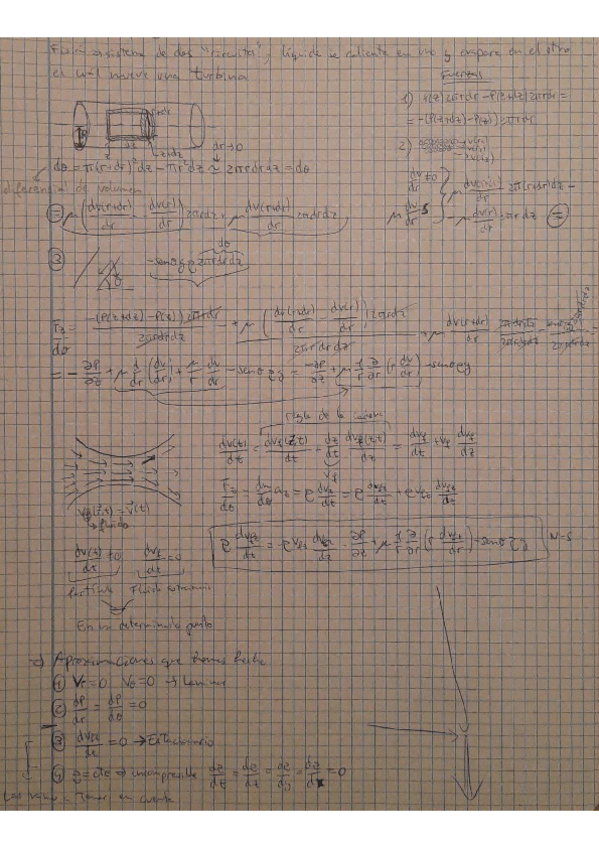 sistema de dos "circuitos", líquido se calienta en uno y evapora en el otro
el cual mueve una turbina
Fuerzas
1) P(z) 2πrdr - P(z+dz) 2πrdr =
= -(P(z+dz) - P(z)) 2πrdr
2)
r+dr
z
z+dz
dr→0
dθ = π(r+dr)²dz - πr²dz ≃ 2πrdrdz = dθ
diferencial de volumen
dv/dr ≠0
μ dv(r+dr)/dr 2π(r+dr)dz -
- μ dv(r)/dr 2πrdz =
= μ (dv(r+dr)/dr - dv(r)/dr) 2πrdz + μ dv(r+dr)/dr 2πdrdz
dθ
3
θ
-senθ g ρ 2πrdrdz
Fz/dθ = -(P(z+dz) - P(z)) 2πrdr / 2πrdrdz + μ (dv(r+dr)/dr - dv(r)/dr) 2πrdz / 2πrdrdz + μ dv(r+dr)/dr
= - ∂P/∂z + μ d/dr (dv/dr) + μ/r dv/dr - senθρg = -∂P/∂z + μ 1/r ∂/∂r (r dv/dr) - senθρg
regla de la
dv(t)/dt = dvz(z,t)/dt + dz/dt dvz(z,t)/dz = dvz/dt + vz dvz/dz
vz
vz(r,t) = v(t)
fluido
Fz/dθ = dm/dθ az = ρ dvz/dt = ρ dvz/dt + ρvz dvz/dz
ρ dvz/dt = -ρvz dvz/dz - ∂P/∂z + μ 1/r ∂/∂r (r dvz/dr) - senθρg
N-S
dv(t)/dt ≠0
dvz/dt = 0
Partícula
Fluido estacionario
En un determinado punto
Aproximaciones que hemos hecho
1 Vr=0 Vθ=0 → Laminar
2 dP/dr = dP/dθ = 0
3 dvz/dt = 0 → Estacionario
4 ρ=cte → incompresible dρ/dt = dρ/dz = dρ/dθ = dρ/dr = 0
Las vamos a tener en cuenta